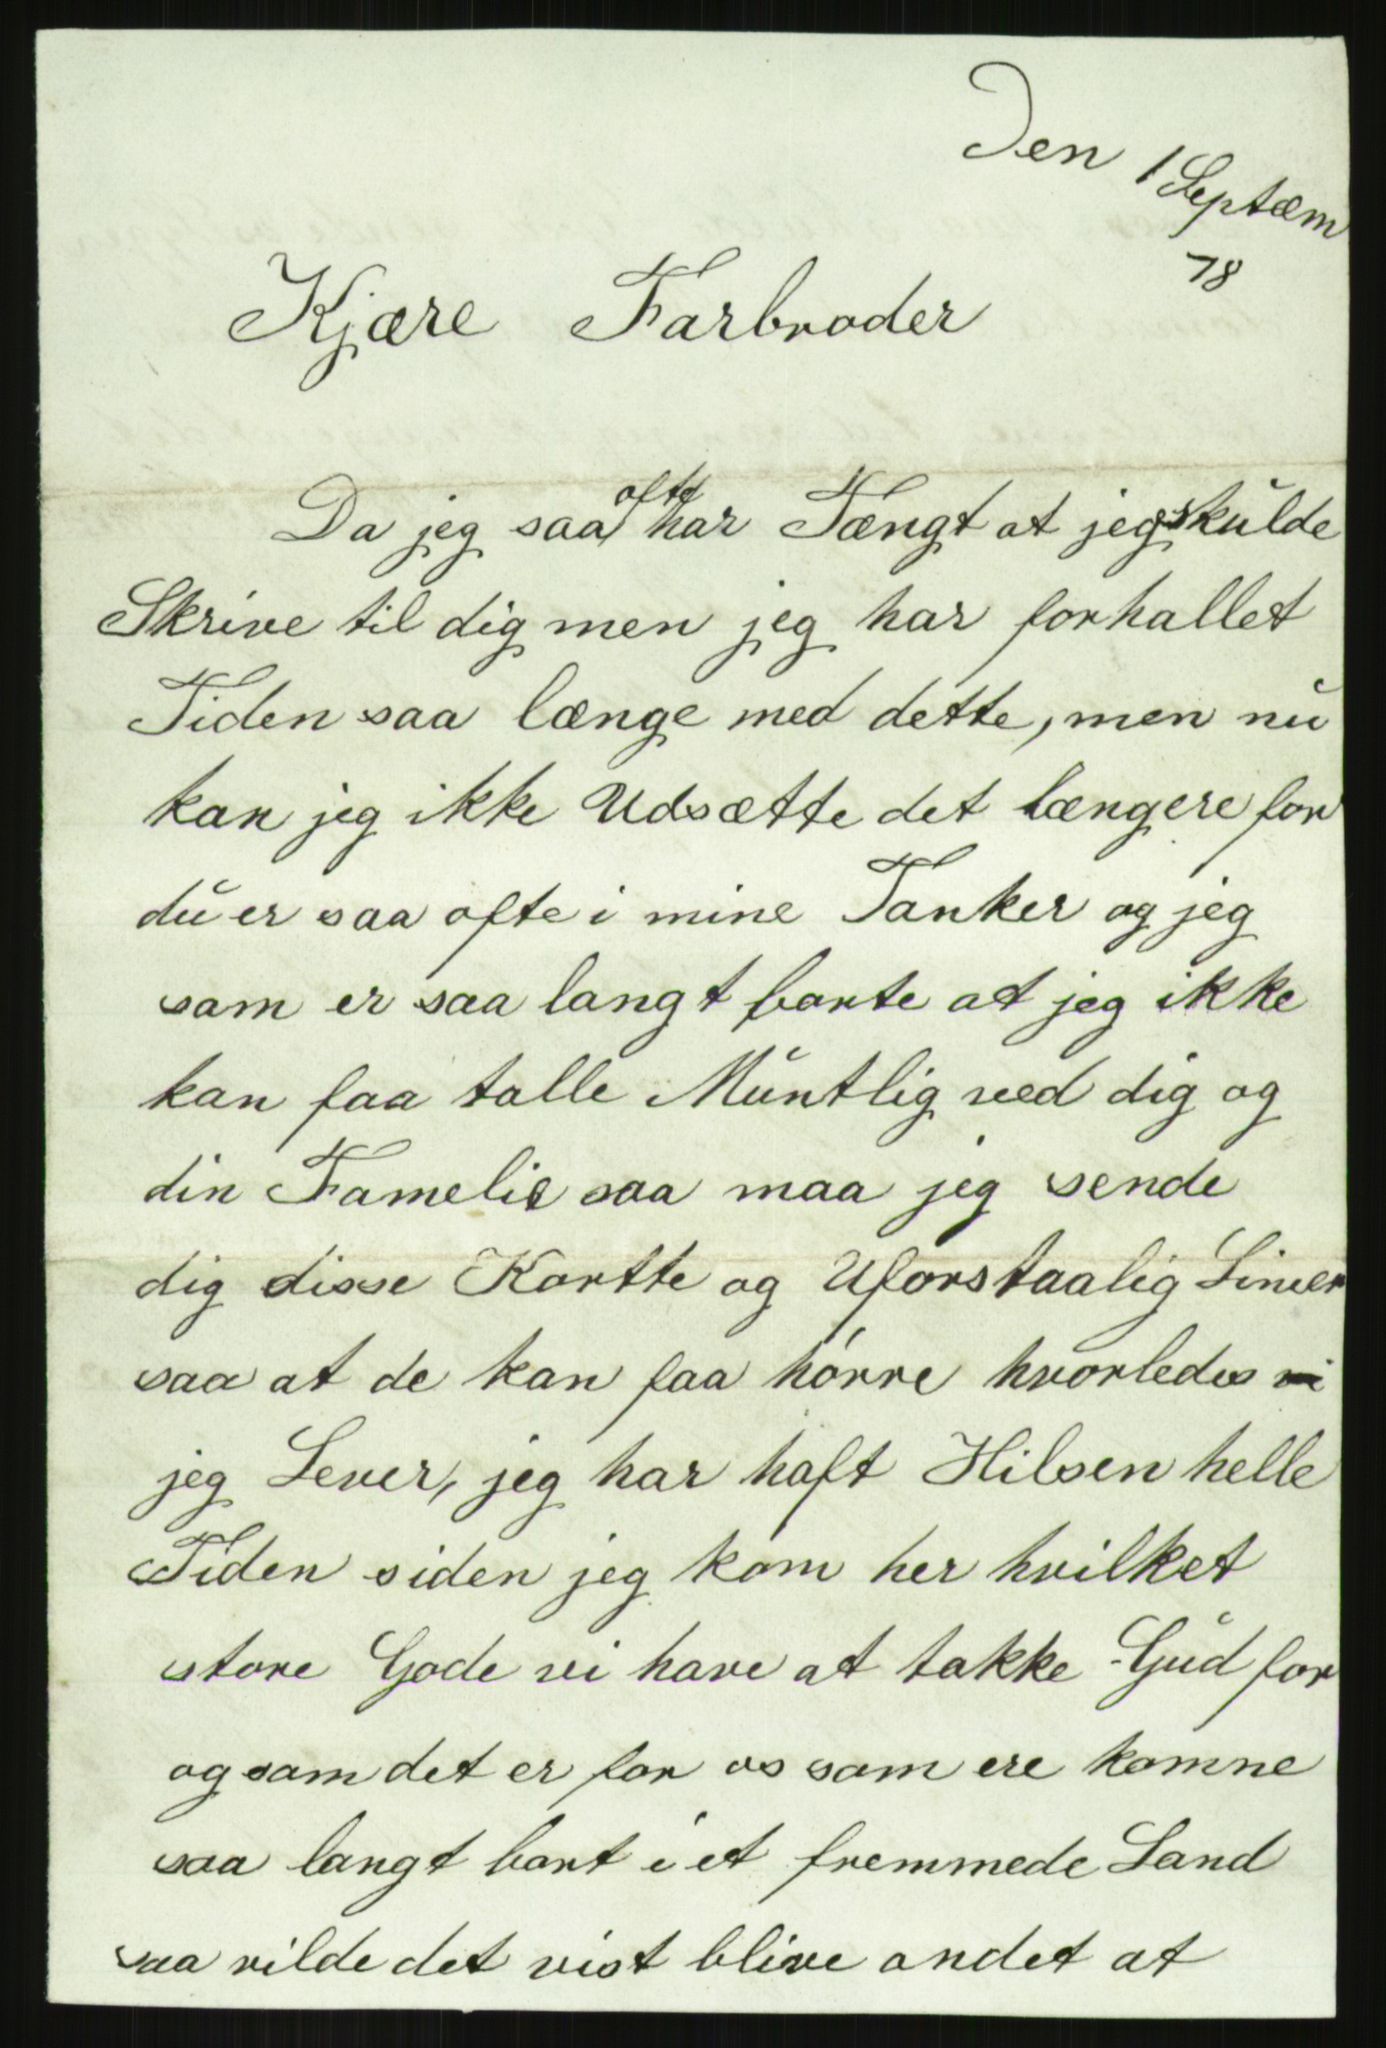 Den 1 Septæm
78
Kjære Farbroder
Da jeg saa ofte har Tængt at jeg skulde
Skrive til dig men jeg har forhallet
Tiden saa længe med dette, men nu
kan jeg ikke Udsætte det længere for
du er saa ofte i mine Tanker og jeg
som er saa langt borte at jeg ikke
kan faa talle Muntlig ved dig og
din Famelie saa maa jeg sende
dig disse Kortte og Uforstaalig Linier
saa at de kan faa hórre hvorledes vi
jeg Lever, jeg har haft Hilsen helle
Tiden siden jeg kom her hvilket
store Gode vi have at takke Gud for
og som det er for os som ere komne
saa langt bort i et fremmede Land
saa vilde det vist blive andet at